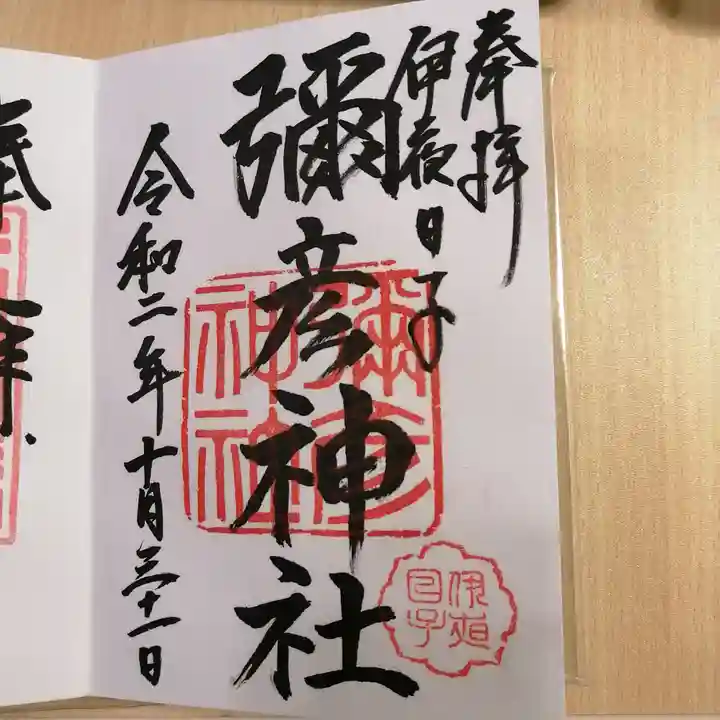 奉拝
伊夜日子
彌彦神社
令和二年十月三十一日
彌彦
神社
伊夜
日子
奉拝